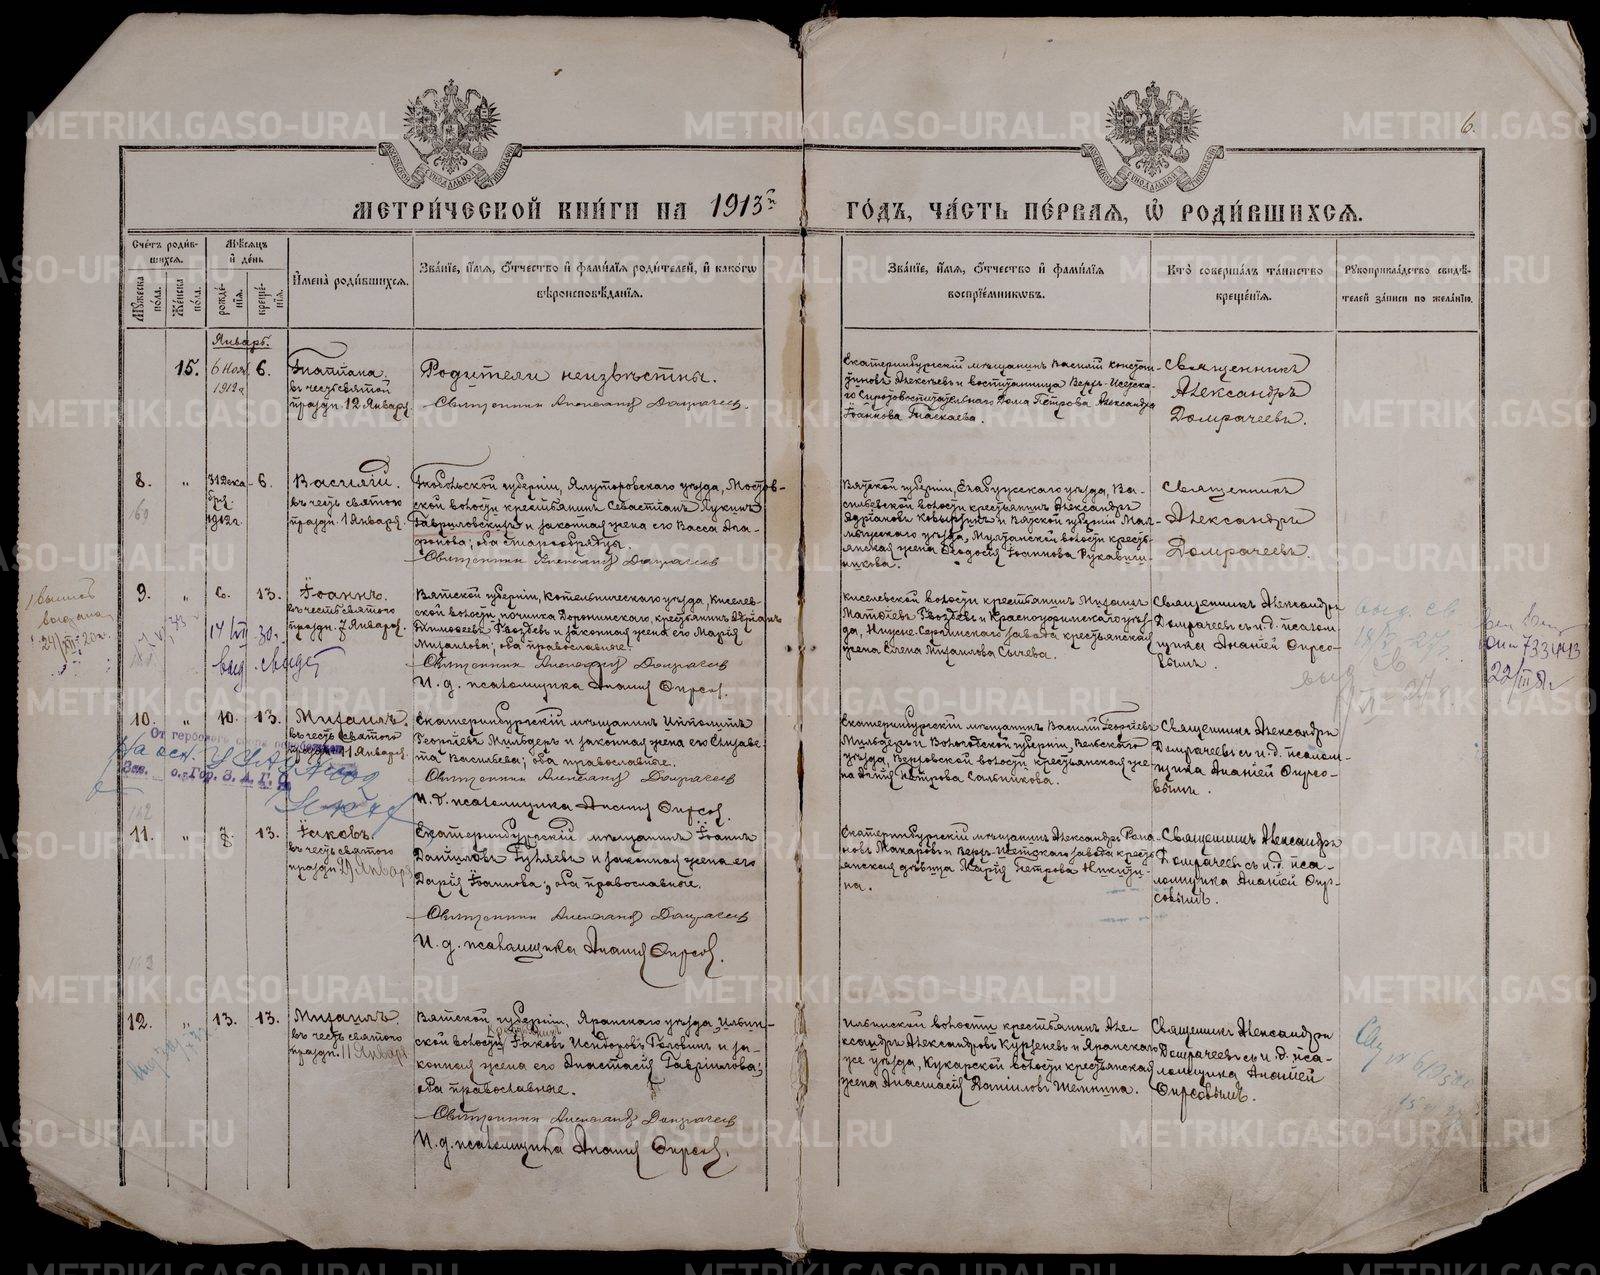 6.
МЕТРИ́ЧЕСКОЙ КНИ́ГИ НА 1913й ГО́ДЪ, ЧА́СТЬ ПЕ́РВАЯ, Ѡ РОДИ́ВШИХСЯ.
Сче́тъ роди́вшихся.
Му́жеска по́ла.
Же́нска по́ла.
Мѣ́сяцъ и де́нь
рожде́нїя.
креще́нїя.
Имена̀ роди́вшихся.
Зва́нїе, и́мя, ѻ́тчество и фами́лїя роди́телей, и како́гѡ
вѣроисповѣ́данїя.
Зва́нїе, и́мя, ѻ́тчество и фами́лїя
воспрїе́мниковъ.
Кто̀ соверша́лъ та́инство
креще́нїя.
Рукоприкла́дство свидѣ́-
телей за́писи по жела́нїю.
Январь.
15. 6 Нояб. 1912 г. 6.
Татїана.
въ честь святой
праздн. 12 Января.
Родители неизвѣстны.
Священникъ Александръ Домрачеевъ.
Екатеринбургскій мѣщанинъ Василій Констан-
тиновъ Алексѣевъ и воспитанница Верхъ-Исетска-
го Сиропитательнаго Дома Петрова Александра
Іоаннова Таскаева.
Священникъ
Александръ
Домрачеевъ.
8. " 31 Дека-
бря
1912 г. 6.
Василій.
въ честь святого
праздн. 1 Января.
Тобольской губерніи, Ялуторовскаго уѣзда, Мостов-
ской волости крестьянинъ Севастіанъ Лукинъ
Гавриловскихъ и законная жена его Васса Ага-
фонова; оба старообрядцы.
Священникъ Александръ Домрачеевъ
Вятской губерніи, Елабужскаго уѣзда, Ва-
сильевской волости крестьянинъ Александръ
Адріановъ и Вятской губерніи Мал-
мыжскаго уѣзда, Мултанской волости кресть-
янская жена Ѳеодосія Іоаннова Рукавиш-
никова.
Священникъ
Александръ
Домрачеевъ.
9. " 6. 13.
Іоаннъ.
въ честь святого
праздн. 7 Января.
Вятской губерніи, Котельническаго уѣзда, Киселев-
ской волости, починка Доронинскаго, крестьянинъ
Тимоѳеевъ и законная жена его Марія
Михаилова; оба православные.
Священникъ Александръ Домрачеевъ
И. д. псаломщика Ананій Ѳирсовъ.
Киселевской волости крестьянинъ Михаилъ
Матѳіевъ и Красноуфимскаго уѣз-
да, Нижне-Сергинскаго завода крестьянская
жена Елена Михаилова Сычева.
Священникъ Александръ
Домрачеевъ съ и.д. псалом-
щика Ананіей Ѳирсо-
вымъ.
14/VII 30 г.
выд. свидет
733443
22/III
10. " 10. 13.
Михаилъ.
въ честь святого
праздн. 11 Января.
Екатеринбургскій мѣщанинъ Ипполитъ
Георгіевъ Мильдеръ и законная жена его Елизаве-
та Васильева; оба православные.
Священникъ Александръ Домрачеевъ
И. д. псаломщика Ананій Ѳирсов.
Екатеринбургскій мѣщанинъ Василій Георгіевъ
Мильдеръ и Вологодской губерніи, Вельскаго
уѣзда, Верховской волости крестьянская же-
на Петрова Сальникова.
Священникъ Александръ
Домрачеевъ съ и.д. псалом-
щика Ананіей Ѳирсо-
вымъ.
От гербового
Зав. о.-Гор. З. А. Г. С.
11. " 7. 13.
Іаковъ.
въ честь святого
праздн. 29 Января
Екатеринбургскій мѣщанинъ Іоаннъ
Даниловъ Гуляевъ и законная жена его
Дарія Іоаннова; оба православные.
Священникъ Александръ Домрачеевъ
И. д. псаломщика Ананій Ѳирсов.
Екатеринбургскій мѣщанинъ Александръ Рома-
новъ Макаровъ и Верхъ-Исетскаго завода кресть-
янская дѣвица Марія Петрова Никити-
на.
Священникъ Александръ
Домрачеевъ съ и.д. пса-
ломщика Ананіей Ѳир-
совымъ.
12. " 13. 13.
Михаилъ.
въ честь святого
праздн. 11 Января
Вятской губерніи, Яранскаго уѣзда, Ильин-
ской волости крестьянинъ Іаковъ Исидоровъ Головинъ и за-
конная жена его Анастасія Гавріилова;
оба православные.
Священникъ Александръ Домрачеевъ
И. д. псаломщика Ананій Ѳирсов.
Ильинской волости крестьянинъ Алек-
сандръ Александровъ и Яранскаго
же уѣзда, Кукарской волости крестьянская
жена Анастасія Данилова
Священникъ Александръ
Домрачеевъ съ и.д. пса-
ломщика Ананіей
Ѳирсовымъ.
METRIKI.GASO-URAL.RU